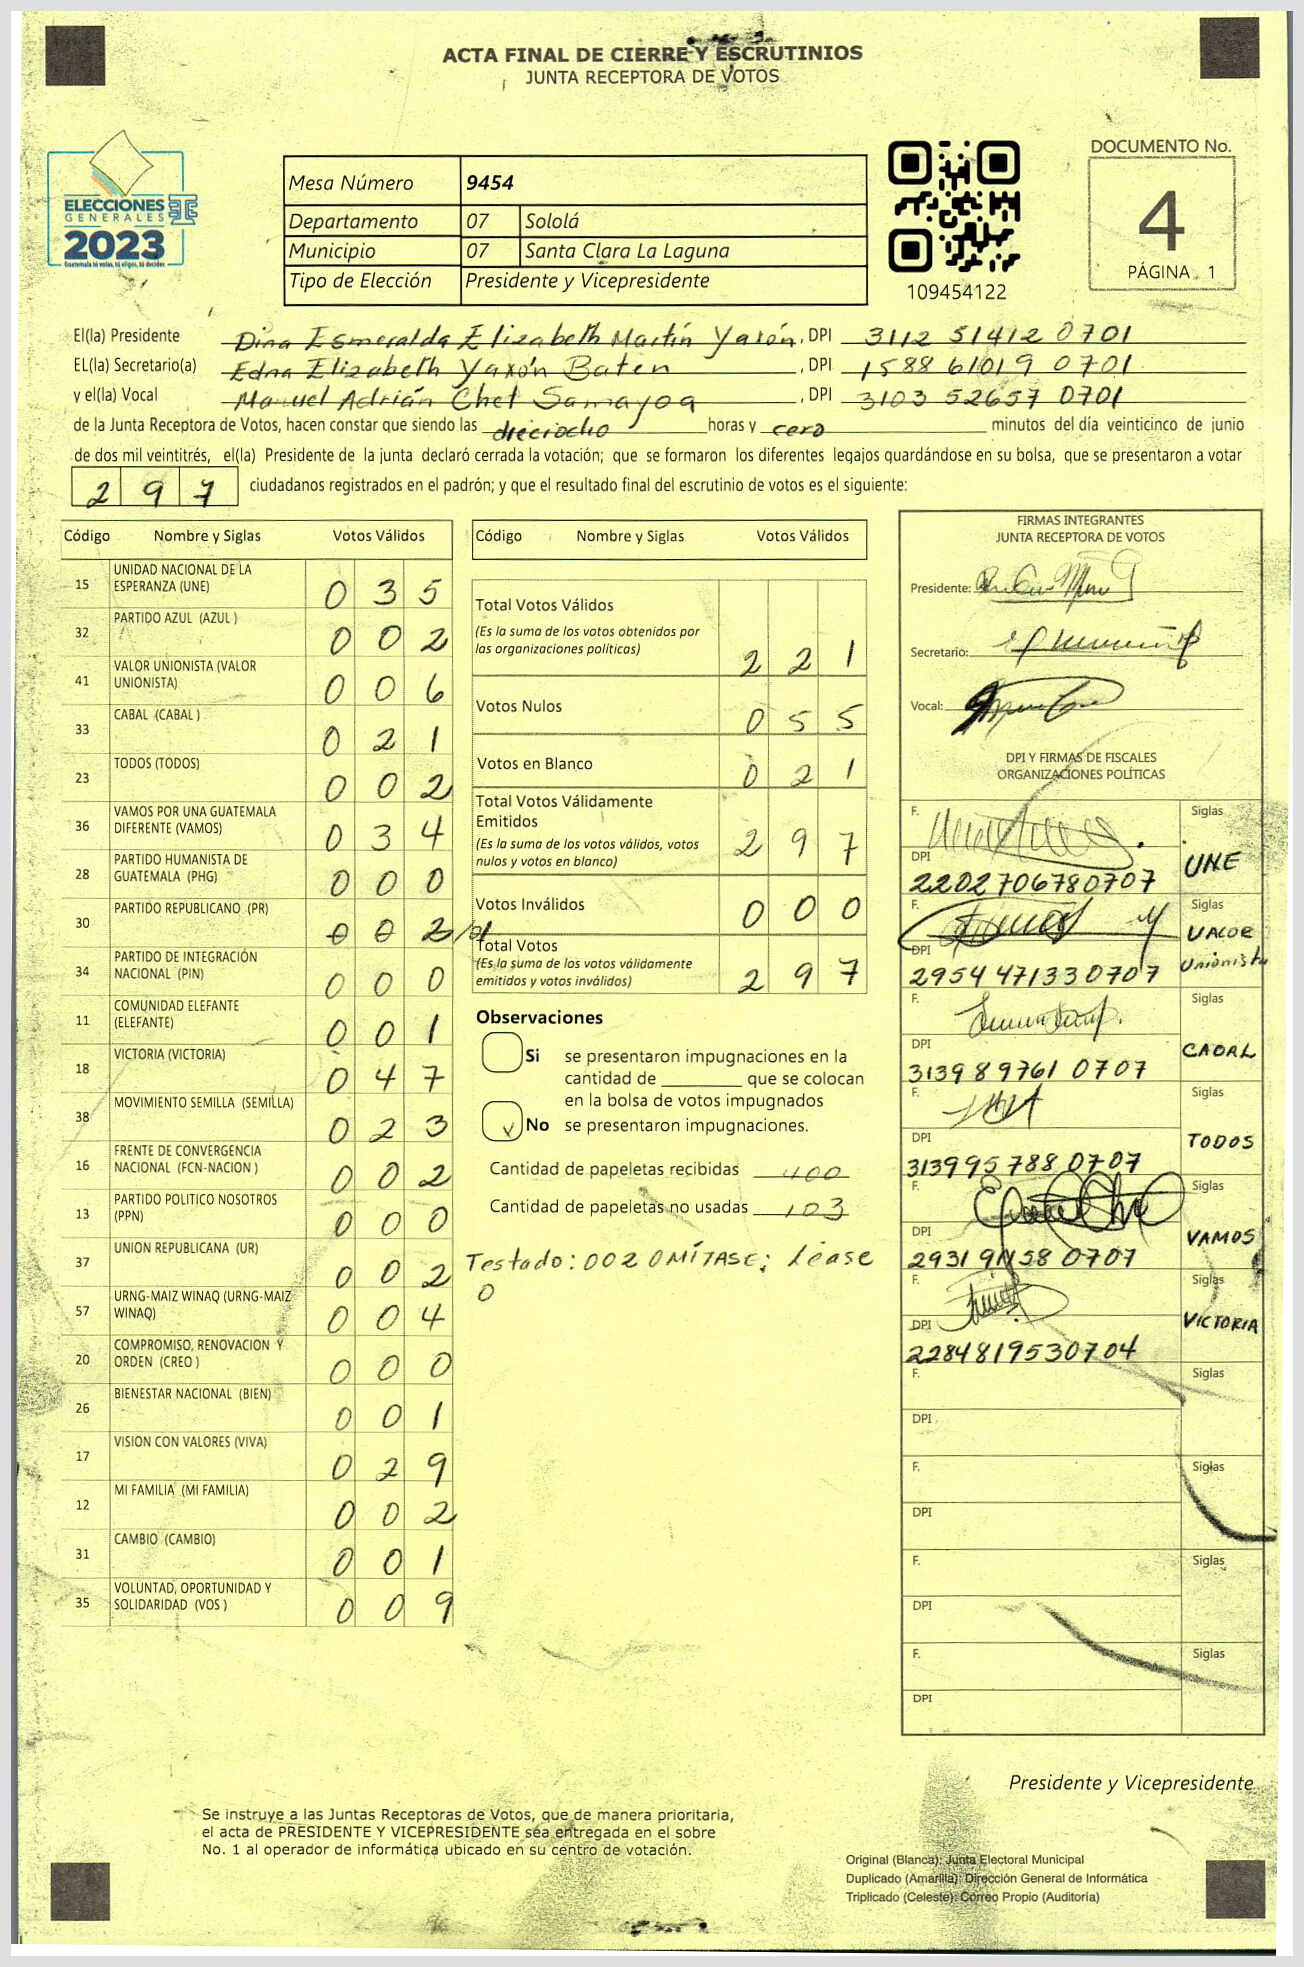 ACTA FINAL DE CIERRE Y ESCRUTINIOS
JUNTA RECEPTORA DE VOTOS
ELECCIONES
GENERALES
2023
Guatemala tú votas, tú eliges, tú decides
Mesa Número 9454
Departamento 07 Sololá
Municipio 07 Santa Clara La Laguna
Tipo de Elección Presidente y Vicepresidente
109454122
DOCUMENTO No.
4
PÁGINA 1
El(la) Presidente Dina Esmeralda Elizabeth Martín Yaxón, DPI 3112 51412 0701
EL(la) Secretario(a) Edna Elizabeth Yaxón Baten, DPI 1588 61019 0701
y el(la) Vocal Manuel Adrián Chet Samayoa, DPI 3103 52657 0701
de la Junta Receptora de Votos, hacen constar que siendo las dieciocho horas y cero minutos del día veinticinco de junio
de dos mil veintitrés, el(la) Presidente de la junta declaró cerrada la votación; que se formaron los diferentes legajos guardándose en su bolsa, que se presentaron a votar
297 ciudadanos registrados en el padrón; y que el resultado final del escrutinio de votos es el siguiente:
Código Nombre y Siglas Votos Válidos
15 UNIDAD NACIONAL DE LA ESPERANZA (UNE) 0 3 5
32 PARTIDO AZUL (AZUL ) 0 0 2
41 VALOR UNIONISTA (VALOR UNIONISTA) 0 0 6
33 CABAL (CABAL ) 0 2 1
23 TODOS (TODOS) 0 0 2
36 VAMOS POR UNA GUATEMALA DIFERENTE (VAMOS) 0 3 4
28 PARTIDO HUMANISTA DE GUATEMALA (PHG) 0 0 0
30 PARTIDO REPUBLICANO (PR) 0 0 2
34 PARTIDO DE INTEGRACIÓN NACIONAL (PIN) 0 0 0
11 COMUNIDAD ELEFANTE (ELEFANTE) 0 0 1
18 VICTORIA (VICTORIA) 0 4 7
38 MOVIMIENTO SEMILLA (SEMILLA) 0 2 3
16 FRENTE DE CONVERGENCIA NACIONAL (FCN-NACION ) 0 0 2
13 PARTIDO POLITICO NOSOTROS (PPN) 0 0 0
37 UNION REPUBLICANA (UR) 0 0 2
57 URNG-MAIZ WINAQ (URNG-MAIZ WINAQ) 0 0 4
20 COMPROMISO, RENOVACION Y ORDEN (CREO ) 0 0 0
26 BIENESTAR NACIONAL (BIEN) 0 0 1
17 VISION CON VALORES (VIVA) 0 2 9
12 MI FAMILIA (MI FAMILIA) 0 0 2
31 CAMBIO (CAMBIO) 0 0 1
35 VOLUNTAD, OPORTUNIDAD Y SOLIDARIDAD (VOS ) 0 0 9
Código Nombre y Siglas Votos Válidos
Total Votos Válidos 2 2 1
(Es la suma de los votos obtenidos por
las organizaciones políticas)
Votos Nulos 0 5 5
Votos en Blanco 0 2 1
Total Votos Válidamente
Emitidos 2 9 7
(Es la suma de los votos válidos, votos
nulos y votos en blanco)
Votos Inválidos 0 0 0
Total Votos
(Es la suma de los votos válidamente
emitidos y votos inválidos) 2 9 7
Observaciones
Si se presentaron impugnaciones en la
cantidad de ________ que se colocan
en la bolsa de votos impugnados
No se presentaron impugnaciones.
Cantidad de papeletas recibidas 400
Cantidad de papeletas no usadas 103
Testado: 002 OMÍTASE; Léase
0
FIRMAS INTEGRANTES
JUNTA RECEPTORA DE VOTOS
Presidente:
Secretario:
Vocal:
DPI Y FIRMAS DE FISCALES
ORGANIZACIONES POLÍTICAS
F. Siglas
DPI UNE
2202706780707
F. Siglas
DPI VALOR Unionista
2954 471330707
F. Siglas
DPI CABAL
313989761 0707
F. Siglas
DPI TODOS
313995788 0707
F. Siglas
DPI VAMOS
2931 91158 0707
F. Siglas
DPI VICTORIA
2284819530704
F. Siglas
DPI
F. Siglas
DPI
F. Siglas
DPI
F. Siglas
DPI
Presidente y Vicepresidente
Se instruye a las Juntas Receptoras de Votos, que de manera prioritaria,
el acta de PRESIDENTE Y VICEPRESIDENTE sea entregada en el sobre
No. 1 al operador de informática ubicado en su centro de votación.
Original (Blanca): Junta Electoral Municipal
Duplicado (Amarilla): Dirección General de Informática
Triplicado (Celeste): Correo Propio (Auditoría)